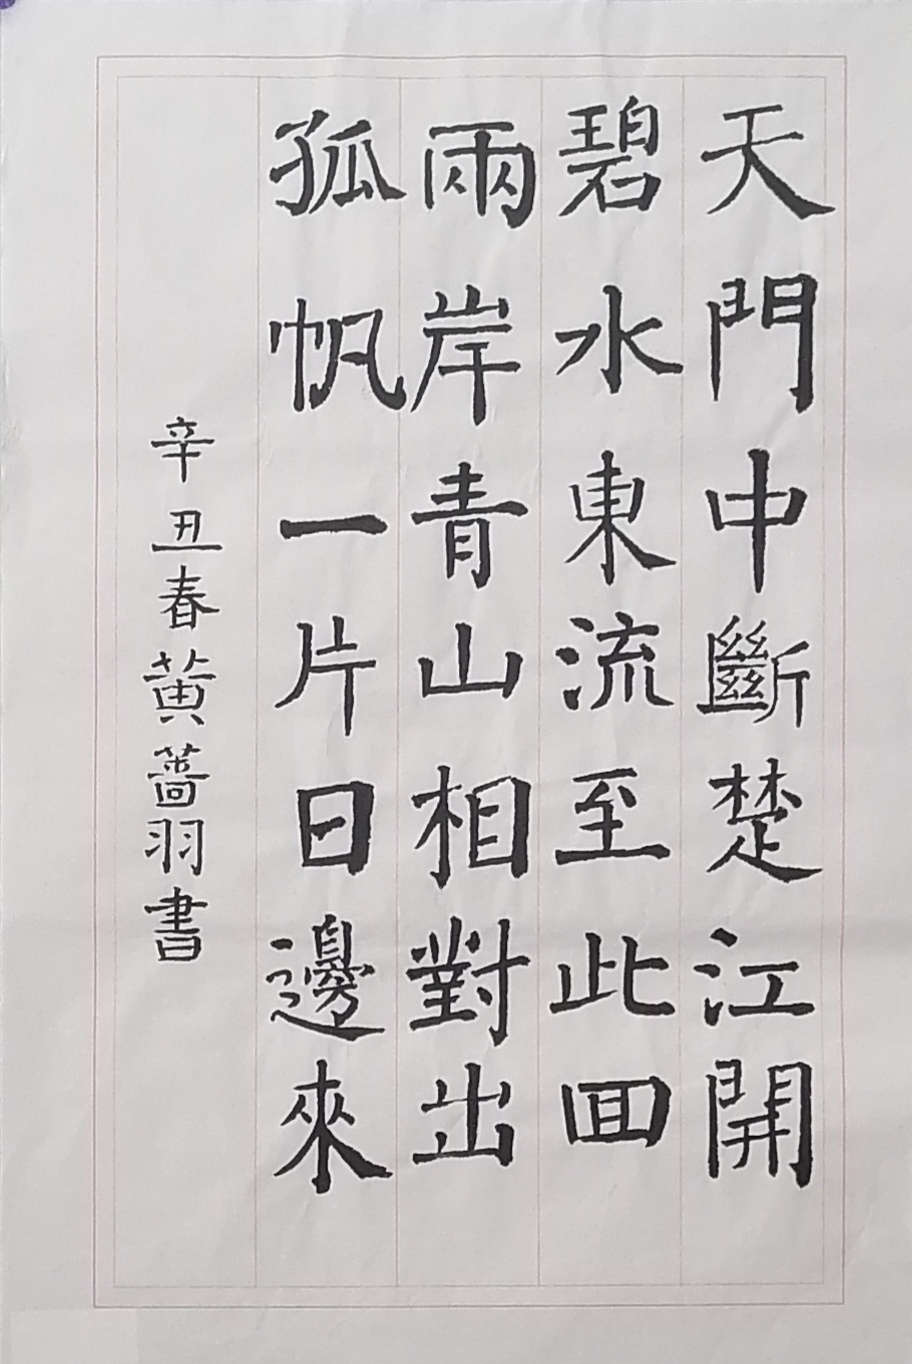 天門中斷楚江開
碧水東流至此回
兩岸青山相對出
孤帆一片日邊來
辛丑春黄薔羽書